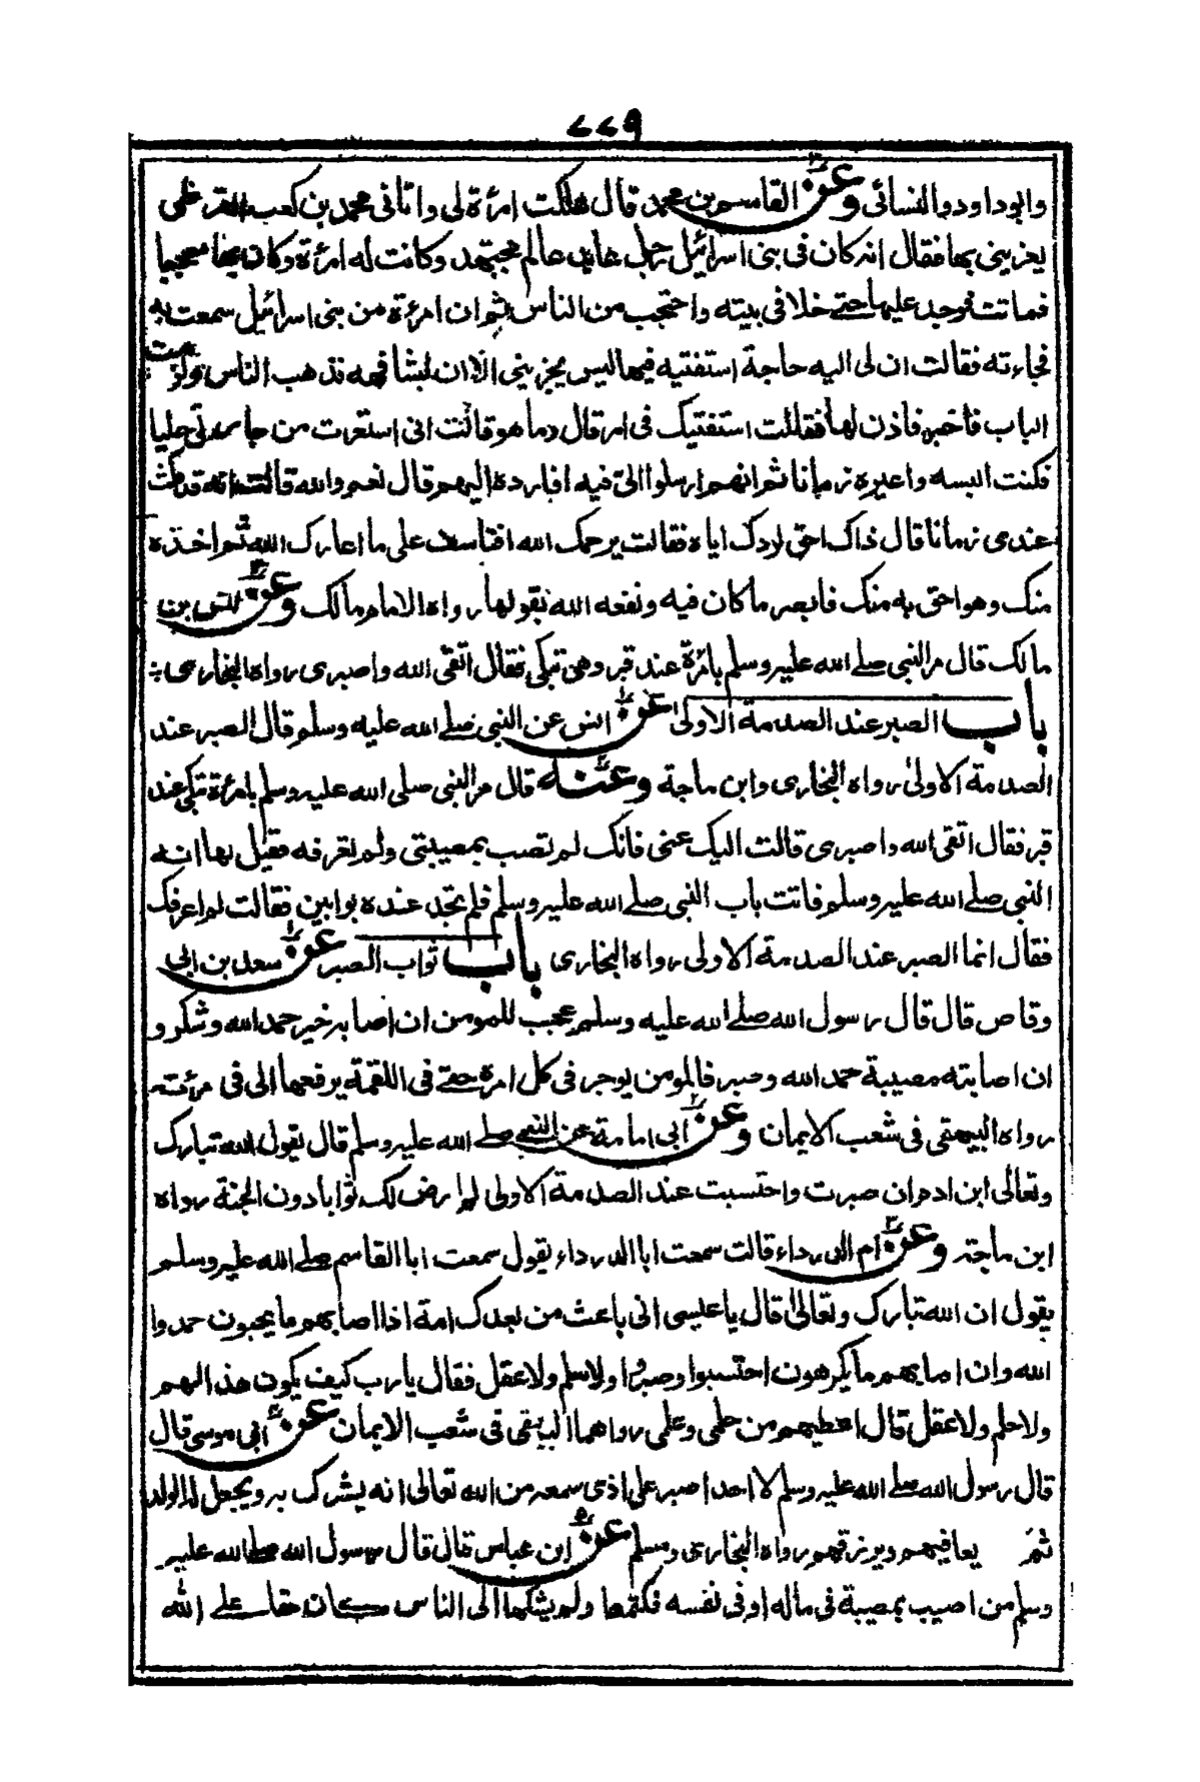 ٢٢٩
وابوداود والنسائى وعن القاسم بن محمد قال هلكت امرأة لى واتانى محمد بن كعب القرظى
يعزينى بها فقال انه كان فى بنى اسرائيل رجل عابد عالم مجتهد وكانت له امرأة وكان بها معجبا
فماتت فوجد عليها حتے خلا فى بيته واحتجب من الناس ثم ان امرءة من بنى اسرائيل سمعت به
فجاءته فقالت ان لى اليه حاجة استفتيه فيها ليس يجزينى الا ان اشافهه فذهب الناس ولزمت
الباب فاخبر فاذن لها فقالت استفتيك فى امر قال وما هو قالت انى استعرت من جارتى حليا
فكنت البسه واعيره زمانا ثم انهم ارسلوا الىّ فيه افارده اليهم قال نعم والله قالت انه قد مكث
عندى زمانا قال ذاك احق لردك اياه فقالت يرحمك الله افتاسف على ما اعارك الله ثم اخذه
منك وهو احق به منك فابصر ما كان فيه ونفعه الله بقولها رواه الامام مالك وعن انس بن
مالك قال مر النبى صلے الله عليه وسلم بامرأة عند قبر وهى تبكى فقال اتقى الله واصبرى رواه البخارى
باب الصبر عند الصدمة الاولى عن انس عن النبى صلے الله عليه وسلم قال الصبر عند
الصدمة الاولىٰ رواه البخارى وابن ماجة وعنه قال مر النبى صلى الله عليه وسلم بامرأة تبكى عند
قبر فقال اتقى الله واصبرى قالت اليك عنى فانك لم تصب بمصيبتى ولم تعرفه فقيل لها انه
النبى صلے الله عليه وسلم فاتت باب النبى صلے الله عليه وسلم فلم تجد عنده بوابين فقالت لم اعرفك
فقال انما الصبر عند الصدمة الاولى رواه البخارى باب ثواب الصبر عن سعد بن ابى
وقاص قال قال رسول الله صلے الله عليه وسلم عجب للمومن ان اصابه خير حمد الله وشكر و
ان اصابته مصيبة حمد الله وصبر فالمومن يوجر فى كل امره حتے فى اللقمة يرفعها الى فى مرءته
رواه البيهقى فى شعب الايمان وعن ابى امامة عن النبى صلے الله عليه وسلم قال يقول الله تبارك
وتعالى ابن ادم ان صبرت واحتسبت عند الصدمة الاولى لم ارض لك ثوابا دون الجنة رواه
ابن ماجة وعن ام الدرداء قالت سمعت ابا الدرداء يقول سمعت ابا القاسم صلے الله عليه وسلم
يقول ان الله تبارك وتعالىٰ قال يا عيسى انى باعث من بعدك امة اذا اصابهم ما يحبون حمدوا
الله وان اصابهم ما يكرهون احتسبوا وصبروا ولا سلم ولا عقل فقال يارب كيف يكون هذا لهم
ولا حلم ولا عقل قال اعطيهم من حلمى وعلمى رواهما البيهقى فى شعب الايمان عن ابى موسى قال
قال رسول الله صلے الله عليه وسلم لا احد اصبر على اذى سمعه من الله تعالى انه يشرك به ويجعل له الولد
ثم يعافيهم ويرزقهم رواه البخارى ومسلم عن ابن عباس قال قال رسول الله صلے الله عليه
وسلم من اصيب بمصيبة فى ماله او فى نفسه فكتمها ولم يشكها الى الناس كان حقا علے الله